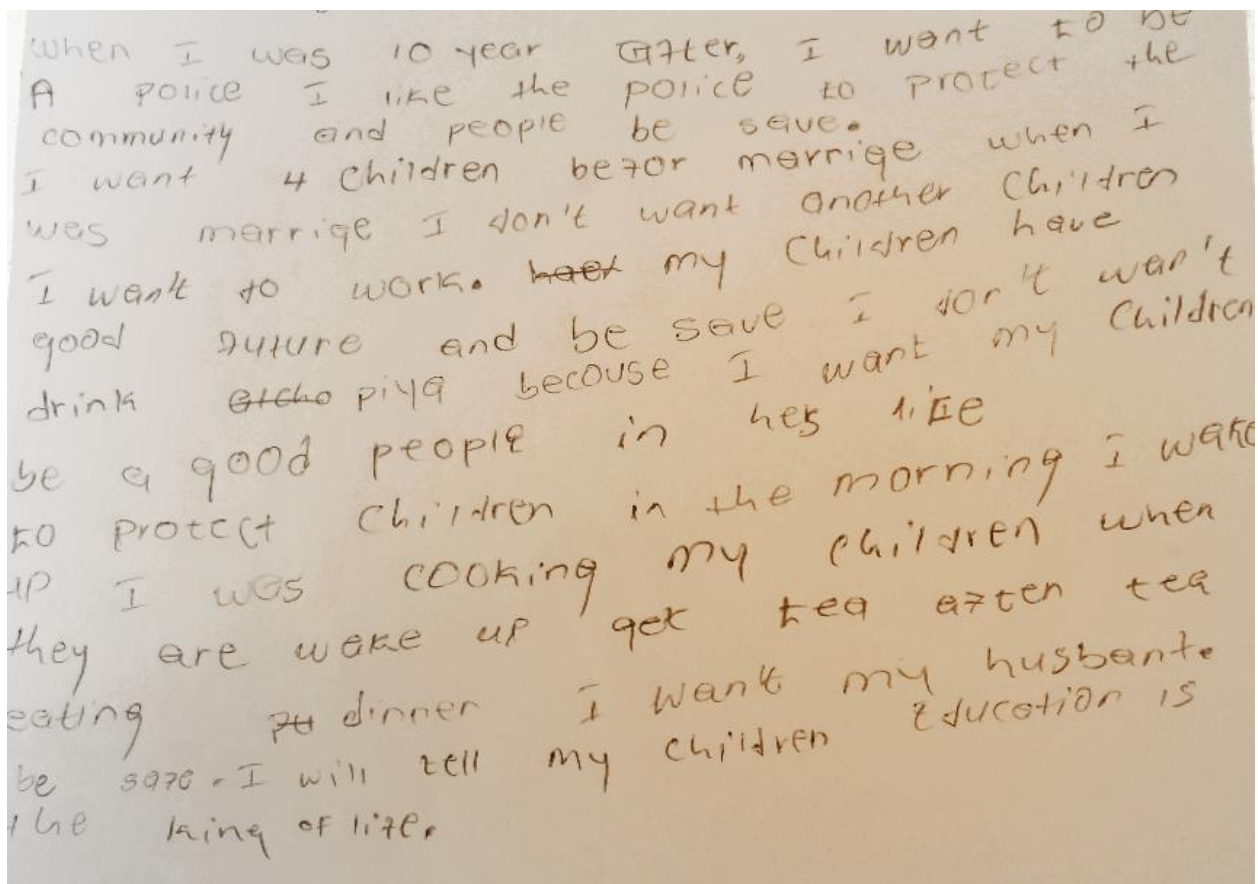 When I was 10 year after, I want to be
A police I like the police to protect the
community and people be save.
I want 4 children befor marrige when I
was marrige I don't want another children
I want to work. my children have
good future and be save I don't wan't
drink piya becouse I want my children
be a good people in life
to protect children in the morning I wake
up I was cooking my children when
they are wake up get tea after tea
eating dinner I want my husbant.
be safe. I will tell my children Education is
the king of life.